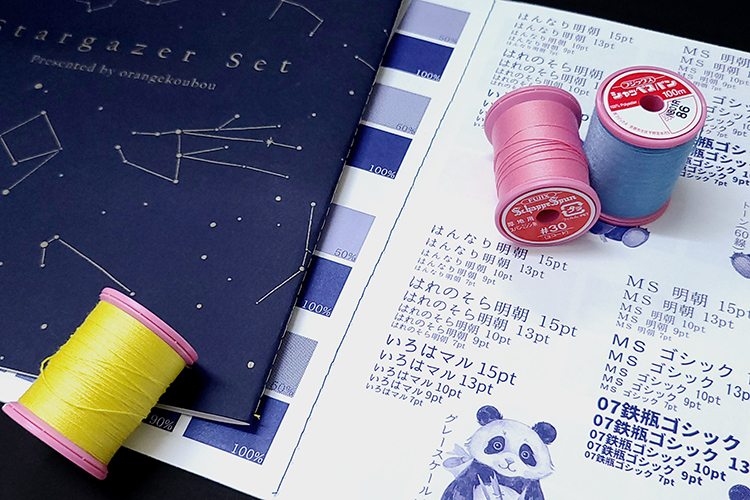 Stargazer Set
Presented by orangekoubou
50%
100%
50%
100%
50%
100%
50%
100%
90%
はんなり明朝 15pt
はんなり明朝 13pt
はんなり明朝 10pt
はんなり明朝 9pt
はれのそら明朝
はれのそら明朝
はれのそら明朝
いろはマル
MS 明朝
MS 明朝 10pt
フジックス
シャッペスパン
100m
FUJIX
Schappe Spun
#30
ゴシック 10pt
ゴシック 9pt
ゴシック 7pt
はんなり明朝 15pt
はんなり明朝 13pt
はんなり明朝 10pt
はんなり明朝 9pt
はんなり明朝 7pt
はれのそら明朝 15pt
はれのそら明朝 13pt
はれのそら明朝 10pt
はれのそら明朝 9pt
はれのそら明朝 7pt
いろはマル 15pt
いろはマル 13pt
いろはマル 10pt
いろはマル 9pt
いろはマル 7pt
グレースケール
MS 明朝 15pt
MS 明朝 13pt
MS 明朝 10pt
MS 明朝 9pt
MS 明朝 7pt
MS ゴシック 15
MS ゴシック 13
MS ゴシック 10pt
MS ゴシック 9pt
MS ゴシック 7pt
07鉄瓶ゴシック
07鉄瓶ゴシック 13
07鉄瓶ゴシック 10pt
07鉄瓶ゴシック 9pt
07鉄瓶ゴシック 7pt